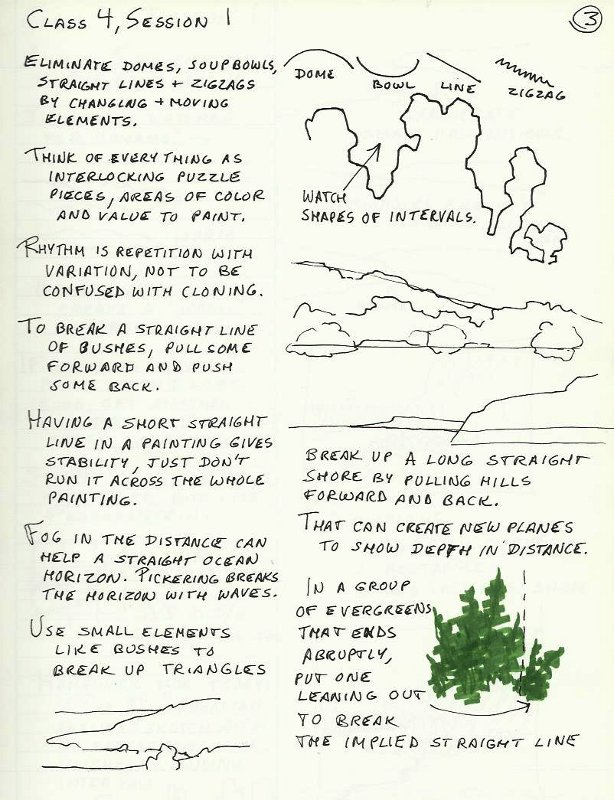 CLASS 4, SESSION 1
3
ELIMINATE DOMES, SOUP BOWLS,
STRAIGHT LINES + ZIGZAGS
BY CHANGING + MOVING
ELEMENTS.
THINK OF EVERYTHING AS
INTERLOCKING PUZZLE
PIECES, AREAS OF COLOR
AND VALUE TO PAINT.
RHYTHM IS REPETITION WITH
VARIATION, NOT TO BE
CONFUSED WITH CLONING.
TO BREAK A STRAIGHT LINE
OF BUSHES, PULL SOME
FORWARD AND PUSH
SOME BACK.
HAVING A SHORT STRAIGHT
LINE IN A PAINTING GIVES
STABILITY, JUST DON'T
RUN IT ACROSS THE WHOLE
PAINTING.
FOG IN THE DISTANCE CAN
HELP A STRAIGHT OCEAN
HORIZON. PICKERING BREAKS
THE HORIZON WITH WAVES.
USE SMALL ELEMENTS
LIKE BUSHES TO
BREAK UP TRIANGLES
DOME
BOWL
LINE
ZIGZAG
WATCH
SHAPES OF INTERVALS.
BREAK UP A LONG STRAIGHT
SHORE BY PULLING HILLS
FORWARD AND BACK.
THAT CAN CREATE NEW PLANES
TO SHOW DEPTH IN DISTANCE.
IN A GROUP
OF EVERGREENS
THAT ENDS
ABRUPTLY,
PUT ONE
LEANING OUT
TO BREAK
THE IMPLIED STRAIGHT LINE